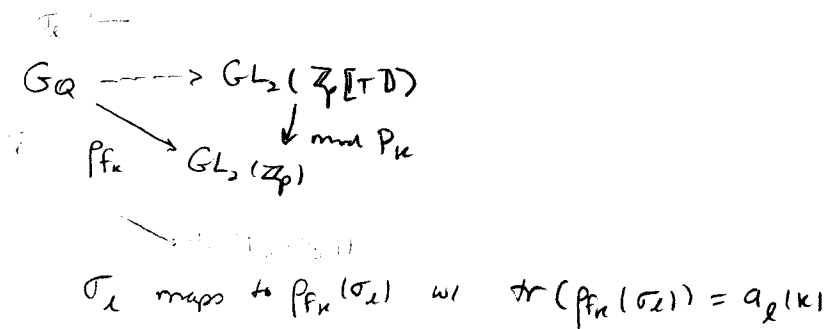 G_Q ----> GL_2(ℤ_p[[T]])
↓ mod P_k
ρ_{f_k} GL_2(ℤ_p)
σ_ℓ maps to ρ_{f_k}(σ_ℓ) w/ tr(ρ_{f_k}(σ_ℓ)) = a_ℓ(k)